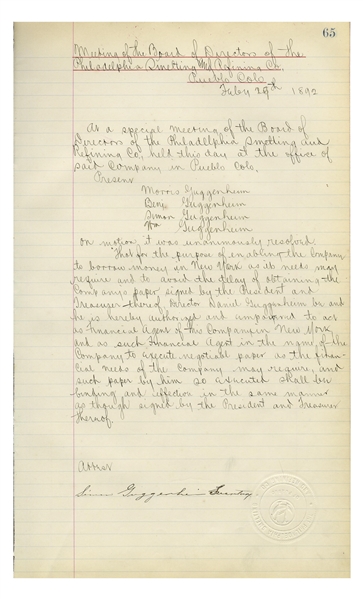 65
Meeting of the Board of Directors of the
Philadelphia Smelting and Refining Co.
Pueblo Colo.
Feby 29th 1892
At a special meeting of the Board of
Directors of the Philadelphia Smelting and
Refining Co. held this day at the office of
said Company in Pueblo Colo.
Present
Morris Guggenheim
Benj. Guggenheim
Simon Guggenheim
Wm Guggenheim
On motion it was unanimously resolved
That for the purpose of enabling the Company
to borrow money in New York as its needs may
require and to avoid the delay of obtaining the
Company's paper signed by the President and
Treasurer thereof, Director Daniel Guggenheim be and
he is hereby authorized and empowered to act
as Financial Agent of this Company in New York,
and as such Financial Agent in the name of the
Company to execute negotiable paper as the finan-
cial needs of the Company may require, and
such paper by him so executed shall be
binding and effective in the same manner
as though signed by the President and Treasurer
thereof.
Attest
Simon Guggenheim Secretary